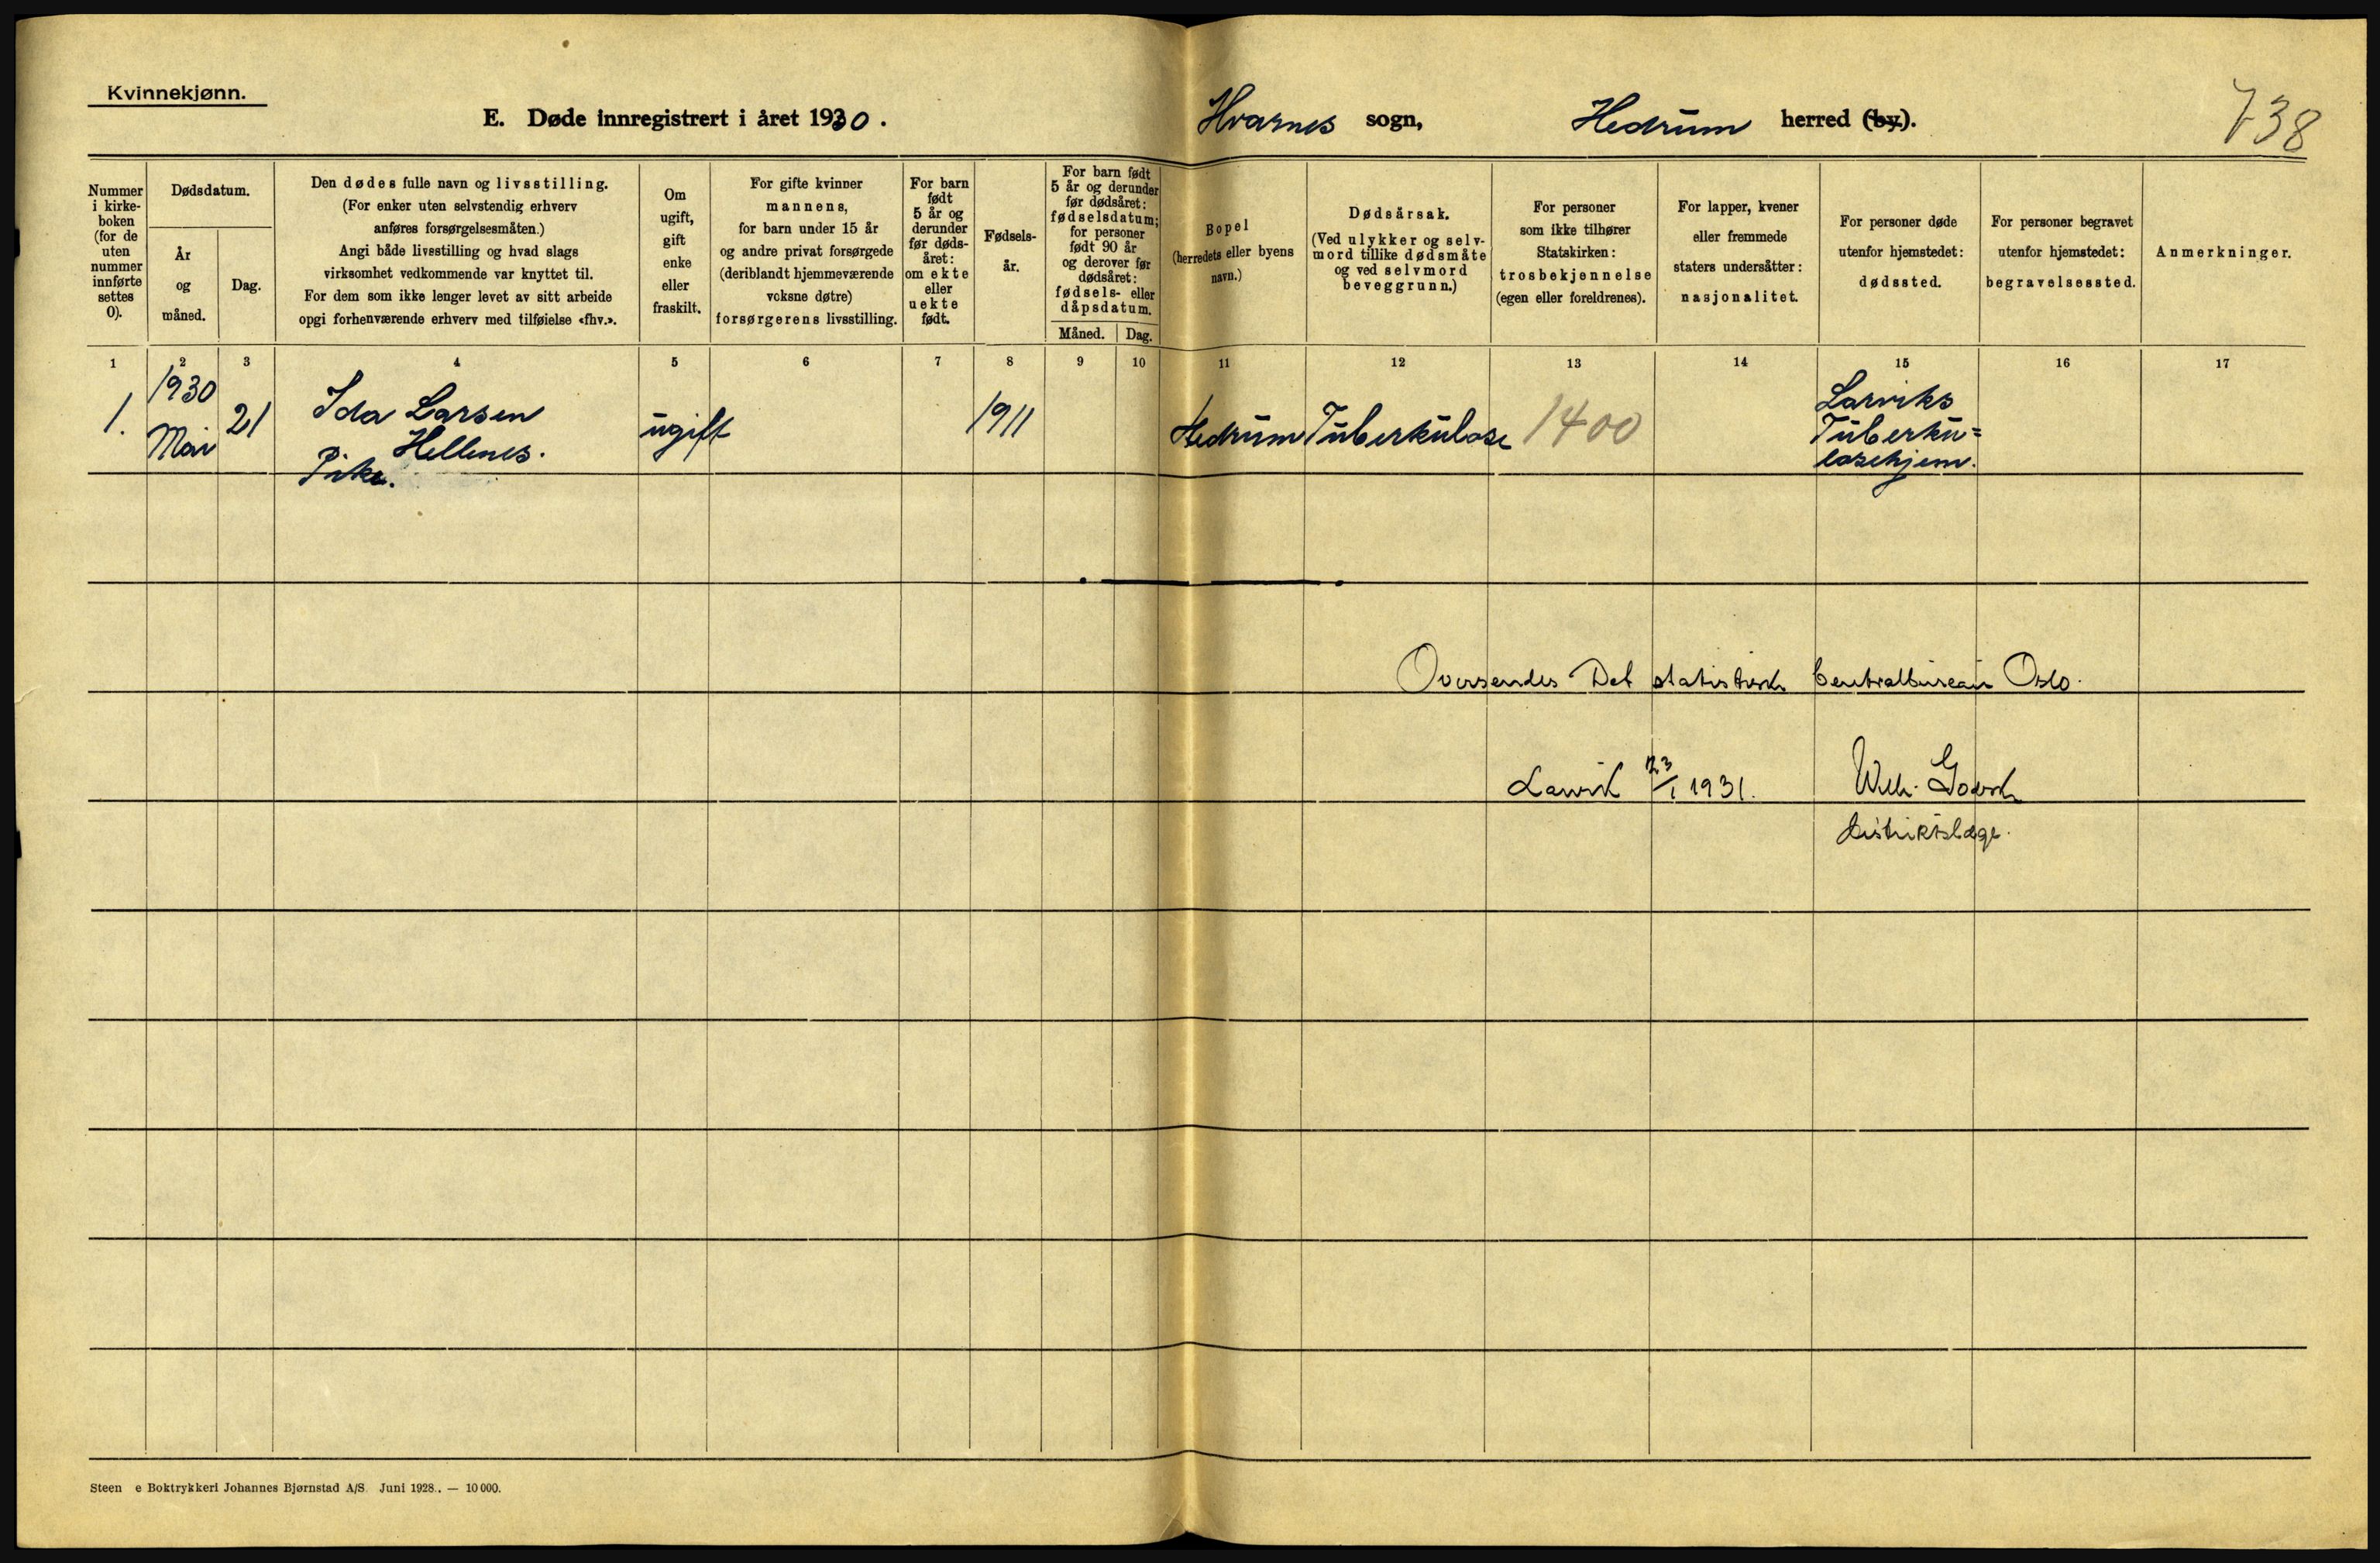 Kvinnekjønn.
E. Døde innregistrert i året 1930.
Hvarnes sogn, Hedrum herred (by).
738
Nummer
i kirke-
boken
(for de
uten
nummer
innførte
settes
0).
Dødsdatum.
År
og
måned.
Dag.
Den dødes fulle navn og livsstilling.
(For enker uten selvstendig erhverv
anføres forsørgelsesmåten.)
Angi både livsstilling og hvad slags
virksomhet vedkommende var knyttet til.
For dem som ikke lenger levet av sitt arbeide
opgi forhenværende erhverv med tilføielse «fhv.».
Om
ugift,
gift
enke
eller
fraskilt.
For gifte kvinner
mannens,
for barn under 15 år
og andre privat forsørgede
(deriblandt hjemmeværende
voksne døtre)
forsørgerens livsstilling.
For barn
født
5 år og
derunder
før døds-
året:
om ekte
eller
uekte
født.
Fødsels-
år.
For barn født
5 år og derunder
før dødsåret:
fødselsdatum;
for personer
født 90 år
og derover før
dødsåret:
fødsels- eller
dåpsdatum.
Måned.
Dag.
Bopel
(herredets eller byens
navn.)
Dødsårsak.
(Ved ulykker og selv-
mord tillike dødsmåte
og ved selvmord
beveggrunn.)
For personer
som ikke tilhører
Statskirken:
trosbekjennelse
(egen eller foreldrenes).
For lapper, kvener
eller fremmede
staters undersåtter:
nasjonalitet.
For personer døde
utenfor hjemstedet:
dødssted.
For personer begravet
utenfor hjemstedet:
begravelsessted.
Anmerkninger.
1 2 3 4 5 6 7 8 9 10 11 12 13 14 15 16 17
1.
1930
Mai
21
Ida Larsen
Hellenes.
Pike.
ugift
1911
Hedrum
Tuberkulose
1400
Larviks
Tuberku=
losehjem.
Oversendes Det statistisk Centralbureau Oslo.
Larvik 23/1 1931.
Wilh.
Distriktslæge.
Steen e Boktrykkeri Johannes Bjørnstad A/S. Juni 1928. — 10 000.